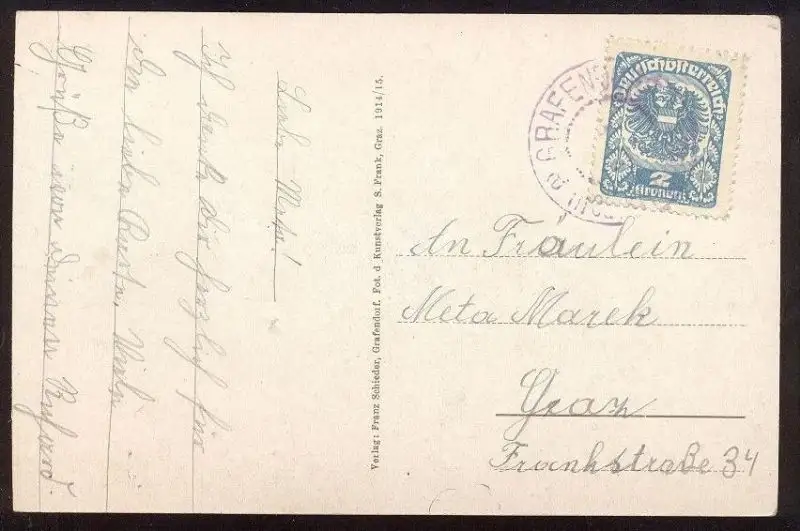 Liebe Meta!
Ich danke Dir herzlich für
die liebe Karte. Viele
Grüße von deinem
Verlag: Franz Schieder, Grafendorf. Fot. d Kunstverlag S. Frank, Graz. 1914/15.
GRAFEND
Deutschösterreich
2
Kronen
An Fräulein
Meta Marek
Graz
Frankstraße 34